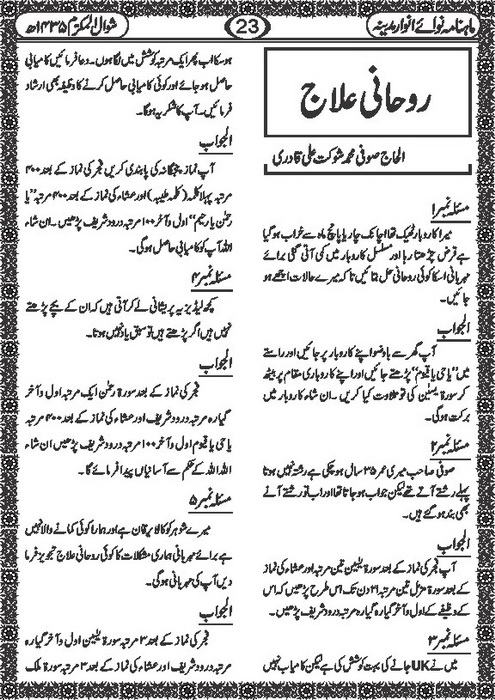 ماہنامہ نوائے انوار مدینہ
23
شوال المکرم ۱۴۳۵ھ
روحانی علاج
الحاج صوفی محمد شوکت علی قادری
مسئلہ نمبر۱
میرا کاروبار ٹھیک تھا اچانک چار یا پانچ ماہ سے خراب ہوگیا
ہے قرض چڑھتا رہا اور مسلسل کاروبار میں کمی آتی گئی برائے
مہربانی اسکا کوئی روحانی حل بتائیں تا کہ میرے حالات اچھے ہو
جائیں۔
الجواب
آپ گھر سے باوضو اپنے کاروبار پر جائیں اور راستے
میں "یا حی یا قیوم" پڑھتے جائیں اور اپنے کاروباری مقام پر بیٹھ
کر سورۃ یسٰین کی تلاوت کیا کریں۔ ان شاء کاروبار میں
برکت ہوگی۔
مسئلہ نمبر۲
صوفی صاحب میری عمر ۳۵ سال ہو چکی ہے رشتہ نہیں ہوتا
پہلے رشتے آتے تھے لیکن جواب ہو جاتا تھا اور اب تو رشتے آنے
بھی بند ہو گئے ہیں۔
الجواب
آپ فجر کی نماز کے بعد سورۃ یٰسین تین مرتبہ اور عشاء کی نماز
کے بعد سورۃ مزمل تین مرتبہ ۲۱ دن تک اس طرح پڑھیں کہ اس
کے وظیفے کے اول و آخر گیارہ گیارہ مرتبہ درود شریف پڑھیں۔
مسئلہ نمبر۳
میں نے UK جانے کی بہت کوشش کی ہے لیکن کامیاب نہیں
ہو سکا اب پھر ایک مرتبہ کوشش میں لگا ہوں۔ دعا فرمائیں کامیابی
حاصل ہو جائے اور کوئی کامیابی حاصل کرنے کا وظیفہ بھی ارشاد
فرمائیں۔ آپ کا شکریہ ہوگا۔
الجواب
آپ نماز پنجگانہ کی پابندی کریں فجر کی نماز کے بعد ۴۰۰
مرتبہ پہلا کلمہ (کلمہ طیبہ) اور عشاء کی نماز کے بعد ۴۰۰ مرتبہ "یا
رحمٰن یا رحیم" اول و آخر ۱۰۰ مرتبہ درود شریف پڑھیں۔ ان شاء
اللہ آپ کو کامیابی حاصل ہوگی۔
مسئلہ نمبر۴
کچھ لیڈیز یہ پریشانی لے کر آتی ہیں کہ ان کے بچے پڑھتے
نہیں ہیں اگر پڑھتے ہیں تو سبق یاد نہیں ہوتا۔
الجواب
فجر کی نماز کے بعد سورۃ رحمٰن ایک مرتبہ اول و آخر
گیارہ مرتبہ درود شریف اور عشاء کی نماز کے بعد ۴۰۰ مرتبہ
یا حی یا قیوم اول و آخر ۱۰۰ مرتبہ درود شریف پڑھیں ان شاء
اللہ اللہ کے حکم سے آسانیاں پیدا فرمائے گا۔
مسئلہ نمبر ۵
میرے شوہر کو کالا یرقان ہے اور ہمارا کوئی کمانے والا نہیں
ہے برائے مہربانی ہماری مشکلات کا کوئی روحانی علاج تجویز فرما
دیں آپ کی مہربانی ہوگی۔
الجواب
فجر کی نماز کے بعد ۳ مرتبہ سورۃ یٰسین اول و آخر گیارہ
مرتبہ درود شریف اور عشاء کی نماز کے بعد ۳ مرتبہ سورۃ ملک